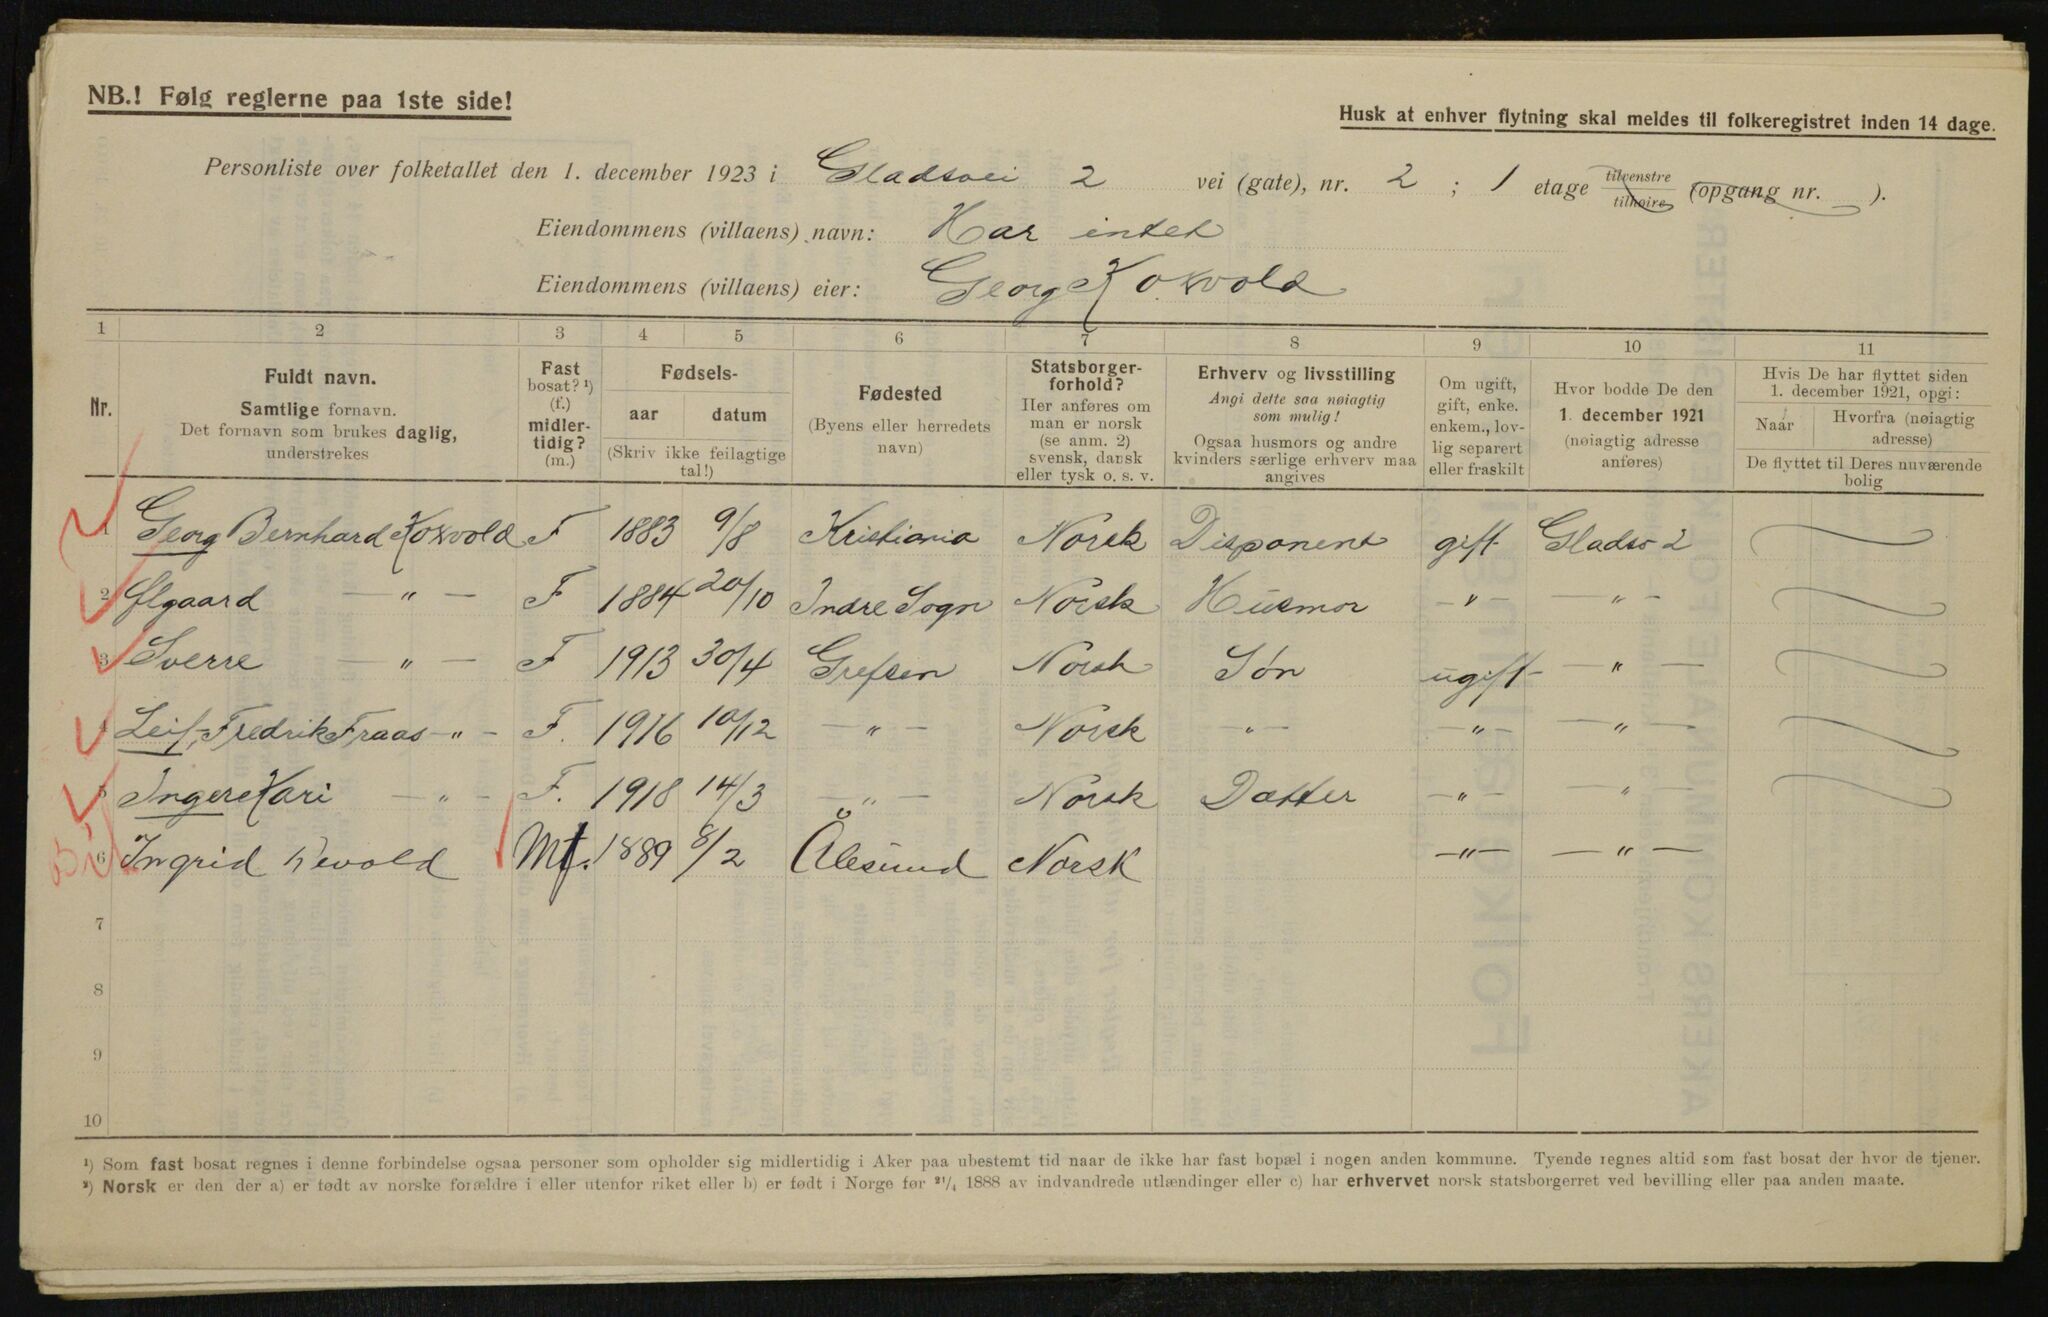 NB.! Følg reglerne paa 1ste side!
Husk at enhver flytning skal meldes til folkeregistret inden 14 dage.
Personliste over folketallet den 1. december 1923 i Gladsvei 2 vei (gate), nr. 2 ; 1 etage tilvenstre tilhøire (opgang nr. ).
Eiendommens (villaens) navn: Har intet
Eiendommens (villaens) eier: Georg Koxvold
1 2 3 4 5 6 7 8 9 10 11
Nr.
Fuldt navn.
Samtlige fornavn.
Det fornavn som brukes daglig,
understrekes
Fast
bosat? ¹)
(f.)
midler-
tidig?
(m.)
Fødsels-
aar datum
(Skriv ikke feilagtige
tal!)
Fødested
(Byens eller herredets
navn)
Statsborger-
forhold?
Her anføres om
man er norsk
(se anm. 2)
svensk, dansk
eller tysk o. s. v.
Erhverv og livsstilling
Angi dette saa nøiagtig
som mulig!
Ogsaa husmors og andre
kvinders særlige erhverv maa
angives
Om ugift,
gift, enke.
enkem., lov-
lig separert
eller fraskilt
Hvor bodde De den
1. december 1921
(nøiagtig adresse
anføres)
Hvis De har flyttet siden
1. december 1921, opgi:
Naar Hvorfra (nøiagtig
adresse)
De flyttet til Deres nuværende
bolig
1 Georg Bernhard Koxvold F 1883 9/8 Kristiania Norsk Disponent gift Gladsv 2
2 Ølgaard —"— F 1884 20/10 Indre Sogn Norsk Husmor —"— —"—
3 Sverre —"— F 1913 30/4 Grefsen Norsk Søn ugift —"—
4 Leif, Fredrik Fraas —"— F. 1916 10/12 —"— Norsk —"— —"— —"—
5 Ingere Kari —"— F. 1918 14/3 —"— Norsk Datter —"— —"—
6 Ingrid Devold 1889 8/2 Ålesund Norsk —"— —"—
7
8
9
10
¹) Som fast bosat regnes i denne forbindelse ogsaa personer som opholder sig midlertidig i Aker paa ubestemt tid naar de ikke har fast bopæl i nogen anden kommune. Tyende regnes altid som fast bosat der hvor de tjener.
²) Norsk er den der a) er født av norske forældre i eller utenfor riket eller b) er født i Norge før ²¹/₄ 1888 av indvandrede utlændinger eller c) har erhvervet norsk statsborgerret ved bevilling eller paa anden maate.